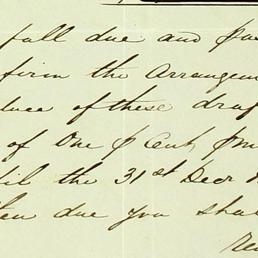 fall due and pa
firm the Arrangem
of these draf
of One p Cent, pm
til the 31st Decr
hen due you shal